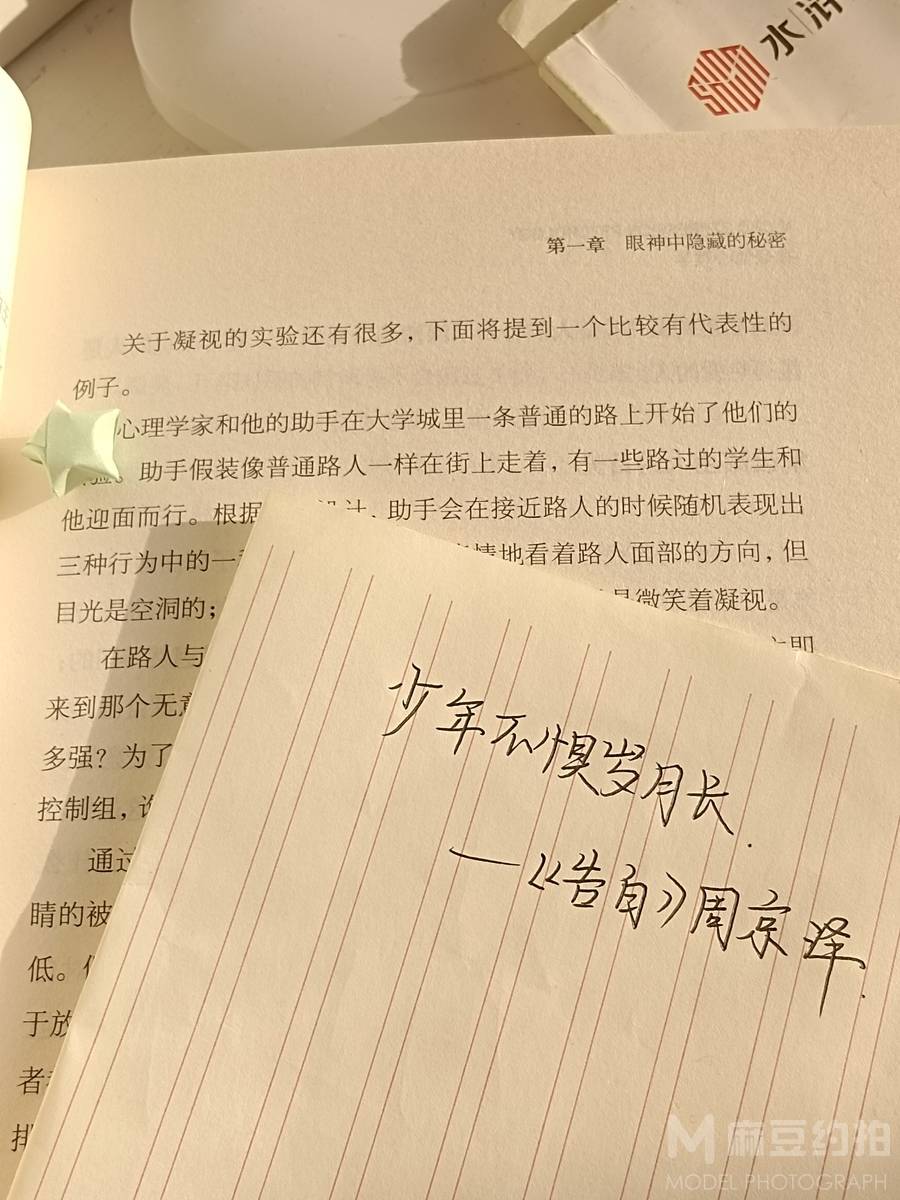 水浒
第一章 眼神中隐藏的秘密
关于凝视的实验还有很多，下面将提到一个比较有代表性的
例子。
心理学家和他的助手在大学城里一条普通的路上开始了他们的
验。助手假装像普通路人一样在街上走着，有一些路过的学生和
他迎面而行。根据 设计，助手会在接近路人的时候随机表现出
三种行为中的一 情地看着路人面部的方向，但
目光是空洞的； 是微笑着凝视。
在路人与 立即
来到那个无意
多强？为了
控制组，
通过
睛的被
低。
于放
者
排
少年不惧岁月长.
——《告白》周京泽.
麻豆约拍
MODEL PHOTOGRAPH